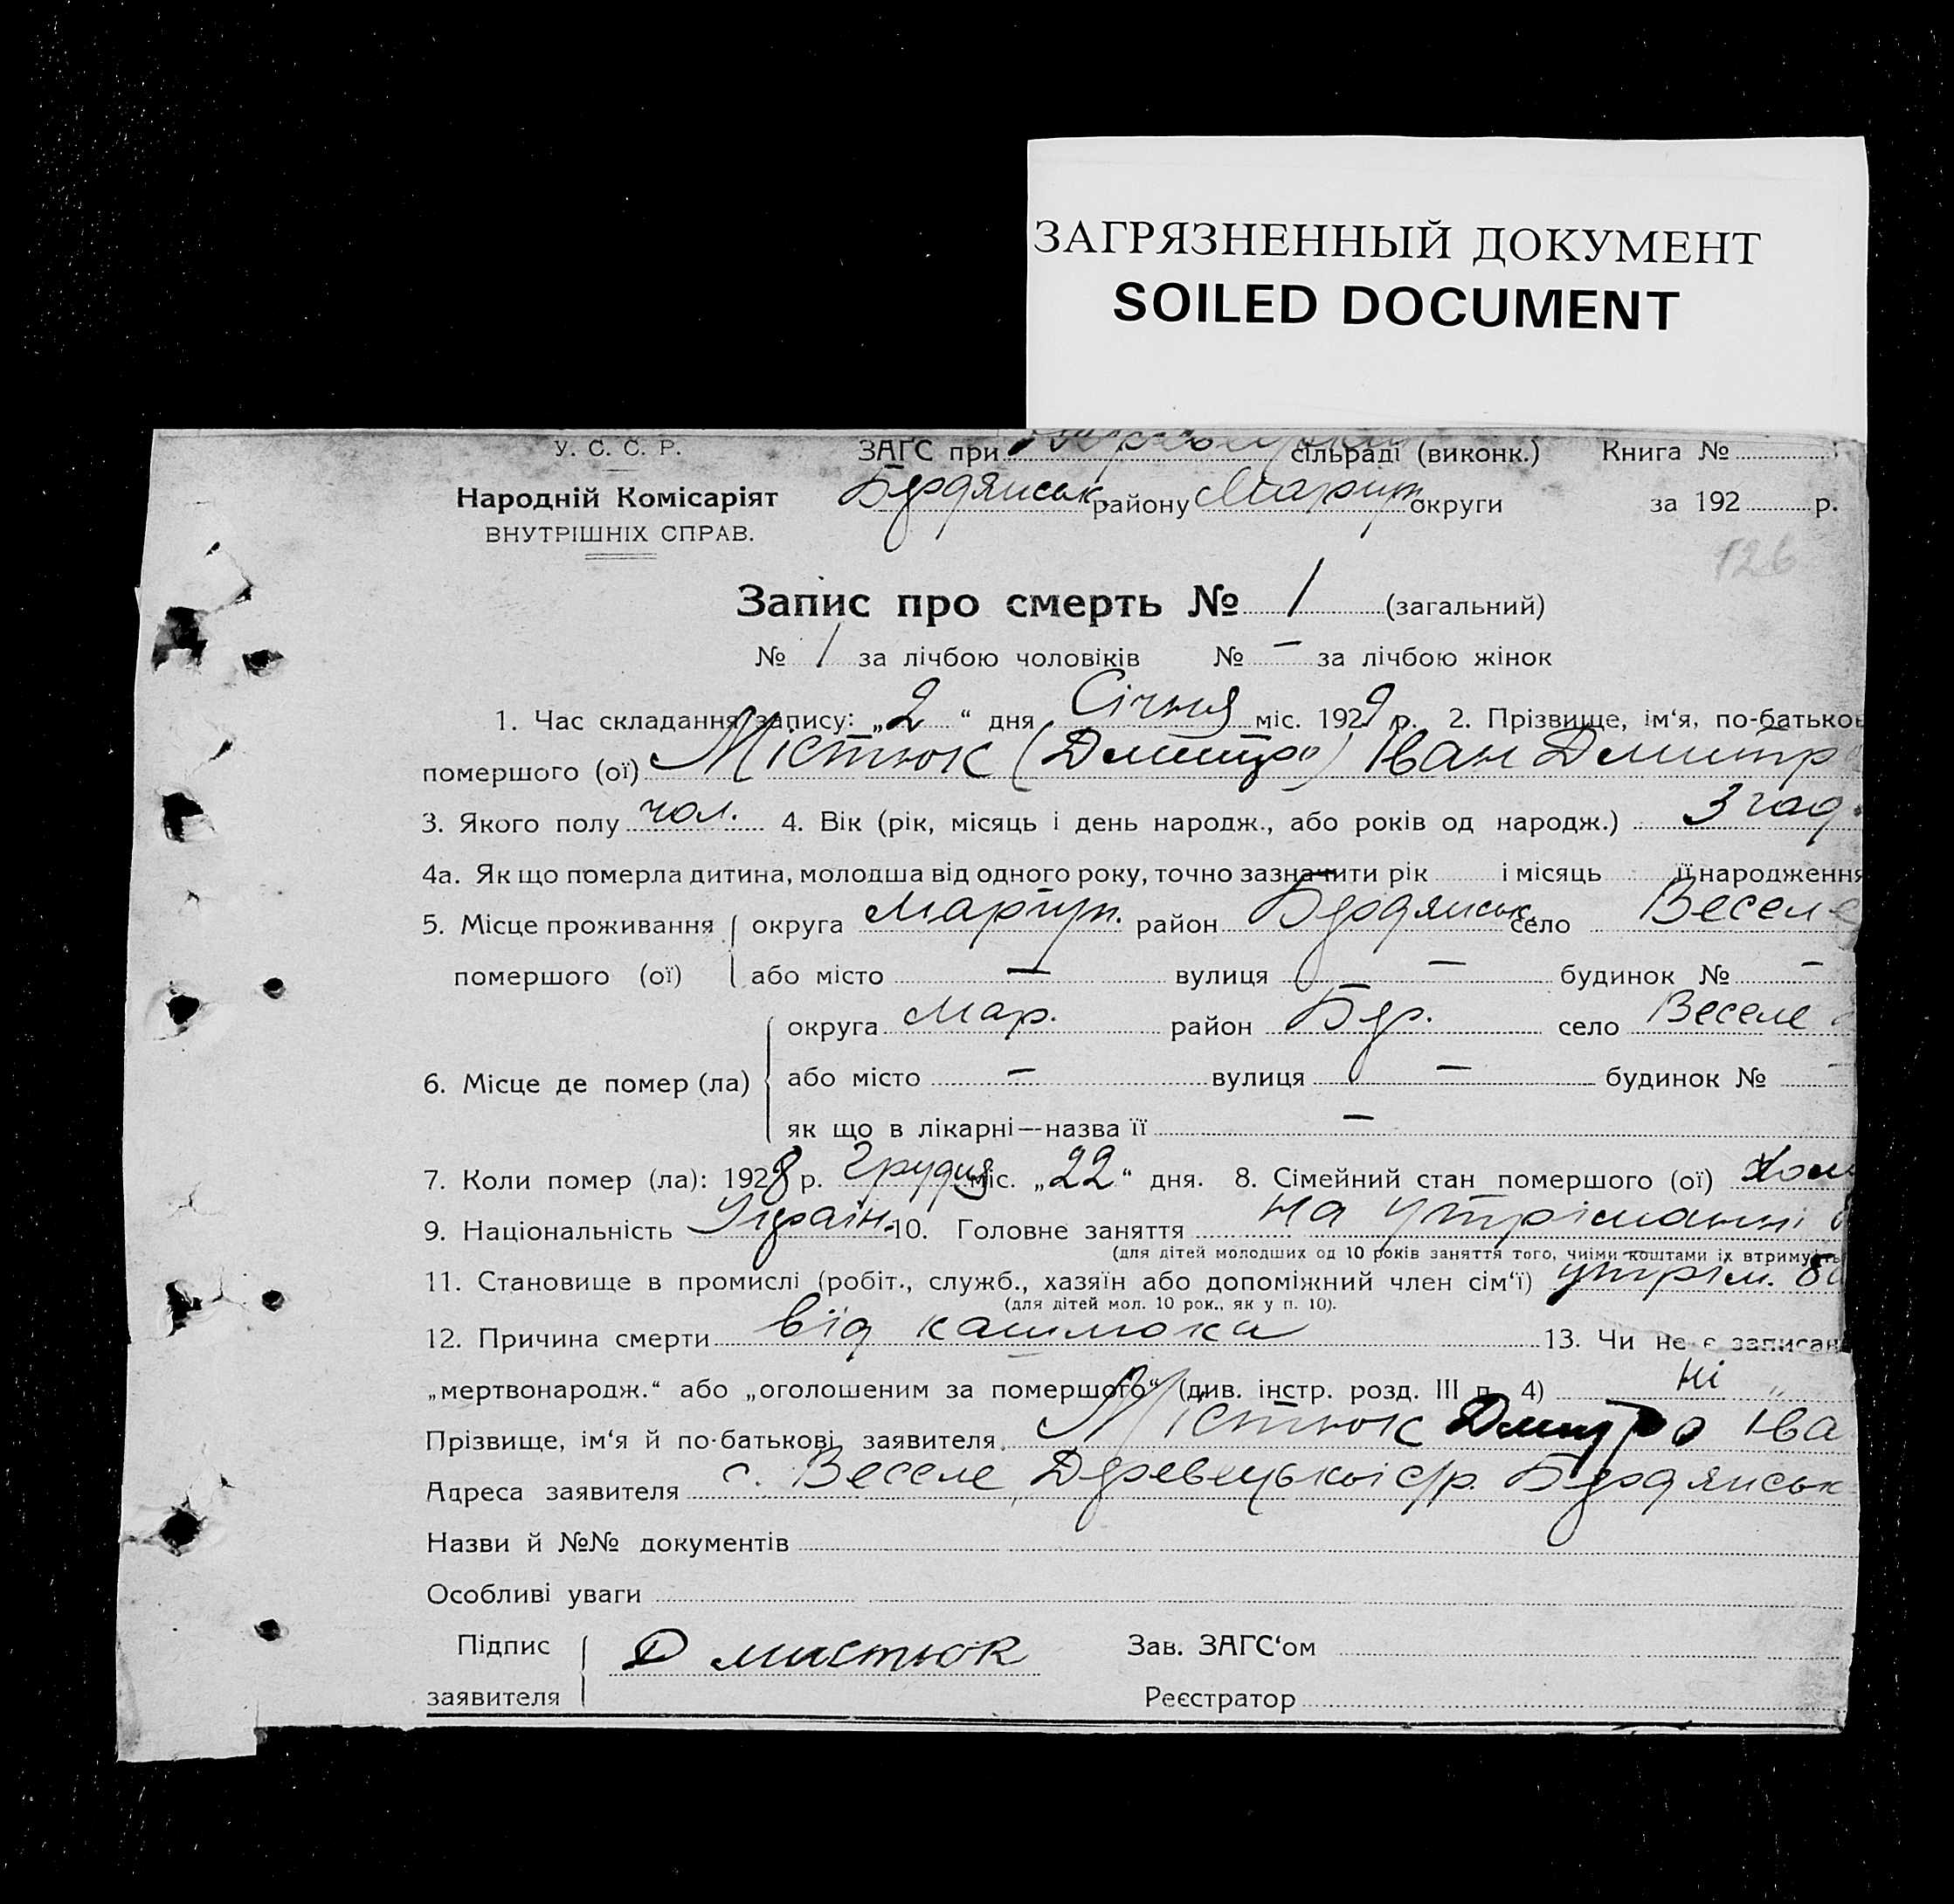 ЗАГРЯЗНЕННЫЙ ДОКУМЕНТ
SOILED DOCUMENT
У. С. С. Р. ЗАГС при сільраді (виконк.) Книга №
Народній Комісаріят Бердянськ. району Маріуп. округи за 192 р.
ВНУТРІШНІХ СПРАВ.
126
Запис про смерть № 1 (загальний)
№ 1 за лічбою чоловіків № — за лічбою жінок
1. Час складання запису: „2“ дня Січня міс. 1929 р. 2. Прізвище, ім‘я, по-батьков
помершого (ої) Містюк (Дмитро) Іван Дмитр
3. Якого полу чол. 4. Вік (рік, місяць і день народж., або років од народж.) 3 год.
4а. Як що померла дитина, молодша від одного року, точно зазначити рік — і місяць її народження
5. Місце проживання округа Маріуп. район Бердянськ. село Веселе
помершого (ої) або місто — вулиця — будинок № —
округа Мар. район Бер. село Веселе
6. Місце де помер (ла) або місто — вулиця — будинок № —
як що в лікарні—назва її —
7. Коли помер (ла): 1928 р. Грудня міс. „22“ дня. 8. Сімейний стан помершого (ої)
9. Національність Україн. 10. Головне заняття на утріманні
(для дітей молодших од 10 років заняття того, чиїми коштами їх втримують
11. Становище в промислі (робіт., служб., хазяїн або допоміжний член сім‘ї) утрім.
(для дітей мол. 10 рок., як у п. 10).
12. Причина смерти від кашлюка 13. Чи не є записан
„мертвонародж.“ або „оголошеним за помершого“ (див. інстр. розд. III п. 4) Ні
Прізвище, ім‘я й по-батькові заявителя Містюк Дмитро Іва
Адреса заявителя с. Веселе, с/р. Бердянськ
Назви й №№ документів
Особливі уваги
Підпис Д мистюк Зав. ЗАГС‘ом
заявителя Реєстратор